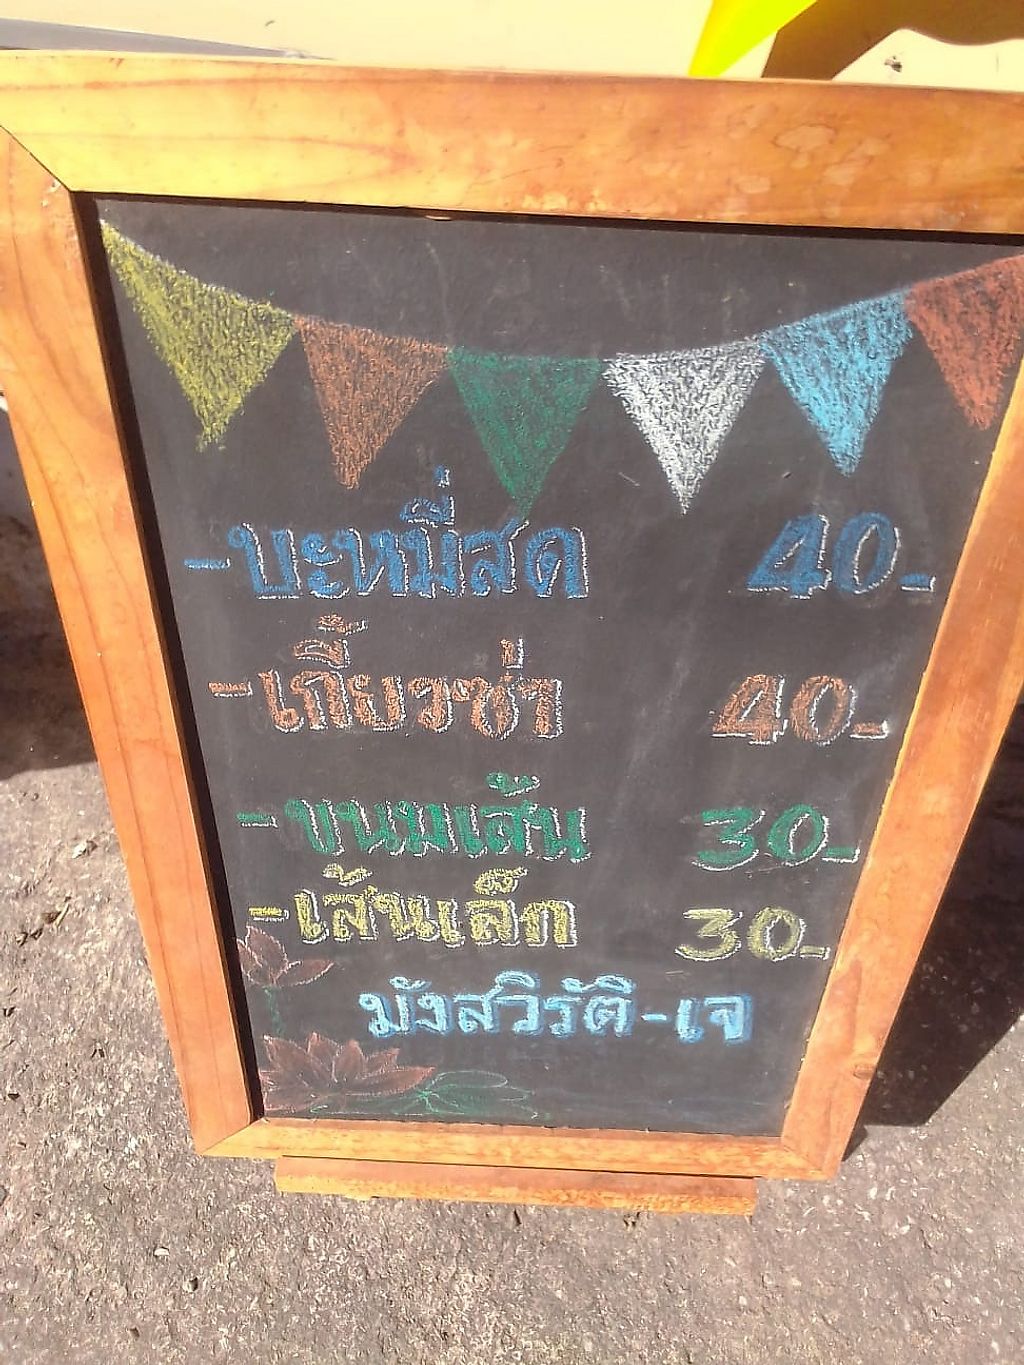 -บะหมี่สด 40-
-เกี๊ยวซ่า 40-
-ขนมเส้น 30-
-เส้นเล็ก 30-
มังสวิรัติ-เจ